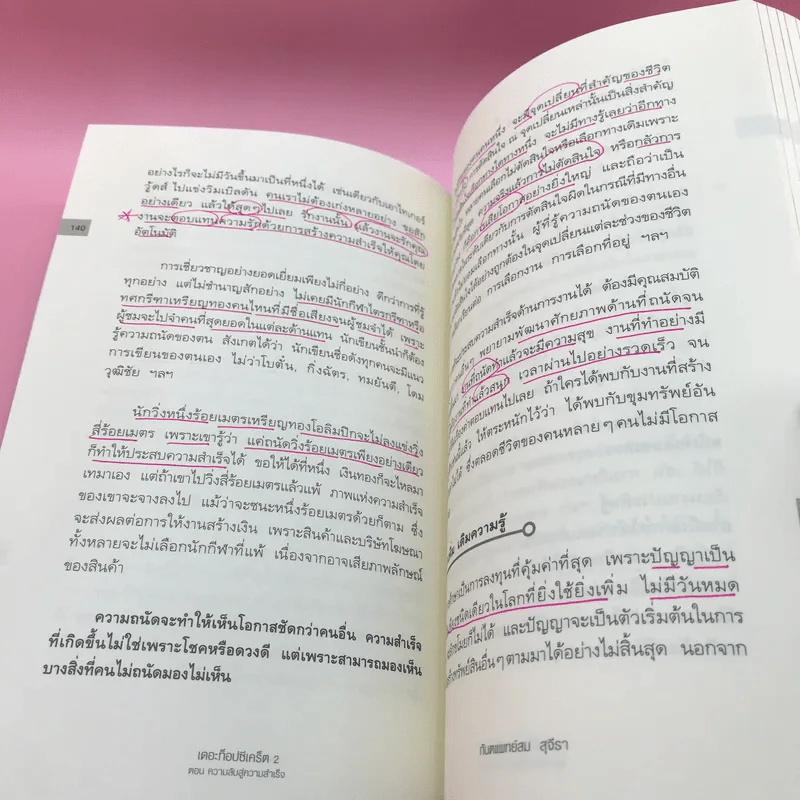 140
อย่างไรก็จะไม่มีวันขึ้นมาเป็นที่หนึ่งได้ เช่นเดียวกับเอาไทเกอร์
วู้ดส์ ไปแข่งวิมเบิลดัน คนเราไม่ต้องเก่งหลายอย่าง ขอสัก
อย่างเดียว แล้วให้สุดๆ ไปเลย รักงานนั้น แล้วงานจะรักคุณ
งานจะตอบแทนความรักด้วยการสร้างความสำเร็จให้คุณโดย
อัตโนมัติ
การเชี่ยวชาญอย่างยอดเยี่ยมเพียงไม่กี่อย่าง ดีกว่าการที่รู้
ทุกอย่าง แต่ไม่ชำนาญสักอย่าง ไม่เคยมีนักกีฬาไตรกรีฑาหรือ
ทศกรีฑาเหรียญทองคนไหนที่มีชื่อเสียงจนผู้ชมจำได้ เพราะ
ผู้ชมจะไปจำคนที่สุดยอดในแต่ละด้านแทน นักเขียนชั้นนำก็ต้อง
รู้ความถนัดของตน สังเกตได้ว่า นักเขียนชื่อดังทุกคนจะมีแนว
การเขียนของตนเอง ไม่ว่าโบตั๋น, กิ่งฉัตร, ทมยันตี, โดม
วุฒิชัย ฯลฯ
นักวิ่งหนึ่งร้อยเมตรเหรียญทองโอลิมปิกจะไม่ลงแข่งวิ่ง
สี่ร้อยเมตร เพราะเขารู้ว่า แค่ถนัดวิ่งร้อยเมตรเพียงอย่างเดียว
ก็ทำให้ประสบความสำเร็จได้ ขอให้ได้ที่หนึ่ง เงินทองก็จะไหลมา
เทมาเอง แต่ถ้าเขาไปวิ่งสี่ร้อยเมตรแล้วแพ้ ภาพแห่งความสำเร็จ
ของเขาจะจางลงไป แม้ว่าจะชนะหนึ่งร้อยเมตรด้วยก็ตาม ซึ่ง
จะส่งผลต่อการให้งานสร้างเงิน เพราะสินค้าและบริษัทโฆษณา
ทั้งหลายจะไม่เลือกนักกีฬาที่แพ้ เนื่องจากอาจเสียภาพลักษณ์
ของสินค้า
ความถนัดจะทำให้เห็นโอกาสชัดกว่าคนอื่น ความสำเร็จ
ที่เกิดขึ้นไม่ใช่เพราะโชคหรือดวงดี แต่เพราะสามารถมองเห็น
บางสิ่งที่คนไม่ถนัดมองไม่เห็น
เดอะท็อปซีเคร็ต 2
ตอน ความลับสู่ความสำเร็จ
จะมีจุดเปลี่ยนที่สำคัญของชีวิต
ณ จุดเปลี่ยนเหล่านั้นเป็นสิ่งสำคัญ
จะไม่มีทางรู้เลยว่าอีกทาง
เลือกไม่ตัดสินใจหรือเลือกทางเดิมเพราะ
ความจริงแล้วการไม่ตัดสินใจ หรือกลัวการ
เสียโอกาสอย่างยิ่งใหญ่ และถือว่าเป็น
เดียวกับการตัดสินใจผิดในกรณีที่มีทางอื่น
เลือกทางนั้น ผู้ที่รู้ความถนัดของตนเอง
ได้อย่างถูกต้องในจุดเปลี่ยนแต่ละช่วงของชีวิต
การเลือกงาน การเลือกที่อยู่ ฯลฯ
ความสำเร็จด้านการงานได้ ต้องมีคุณสมบัติ
พยายามพัฒนาศักยภาพด้านที่ถนัดจน
แล้วจะมีความสุข งานที่ทำอย่างมี
แล้วสนุก เวลาผ่านไปอย่างรวดเร็ว จน
ค่าตอบแทนไปเลย ถ้าใครได้พบกับงานที่สร้าง
ให้ตระหนักไว้ว่า ได้พบกับขุมทรัพย์อัน
ซึ่งตลอดชีวิตของคนหลายๆ คนไม่มีโอกาส
เติมความรู้
เป็นการลงทุนที่คุ้มค่าที่สุด เพราะปัญญาเป็น
ชนิดเดียวในโลกที่ยิ่งใช้ยิ่งเพิ่ม ไม่มีวันหมด
ไม่ได้ และปัญญาจะเป็นตัวเริ่มต้นในการ
ทรัพย์สินอื่นๆ ตามมาได้อย่างไม่สิ้นสุด นอกจาก
ทันตแพทย์สม สุจีรา